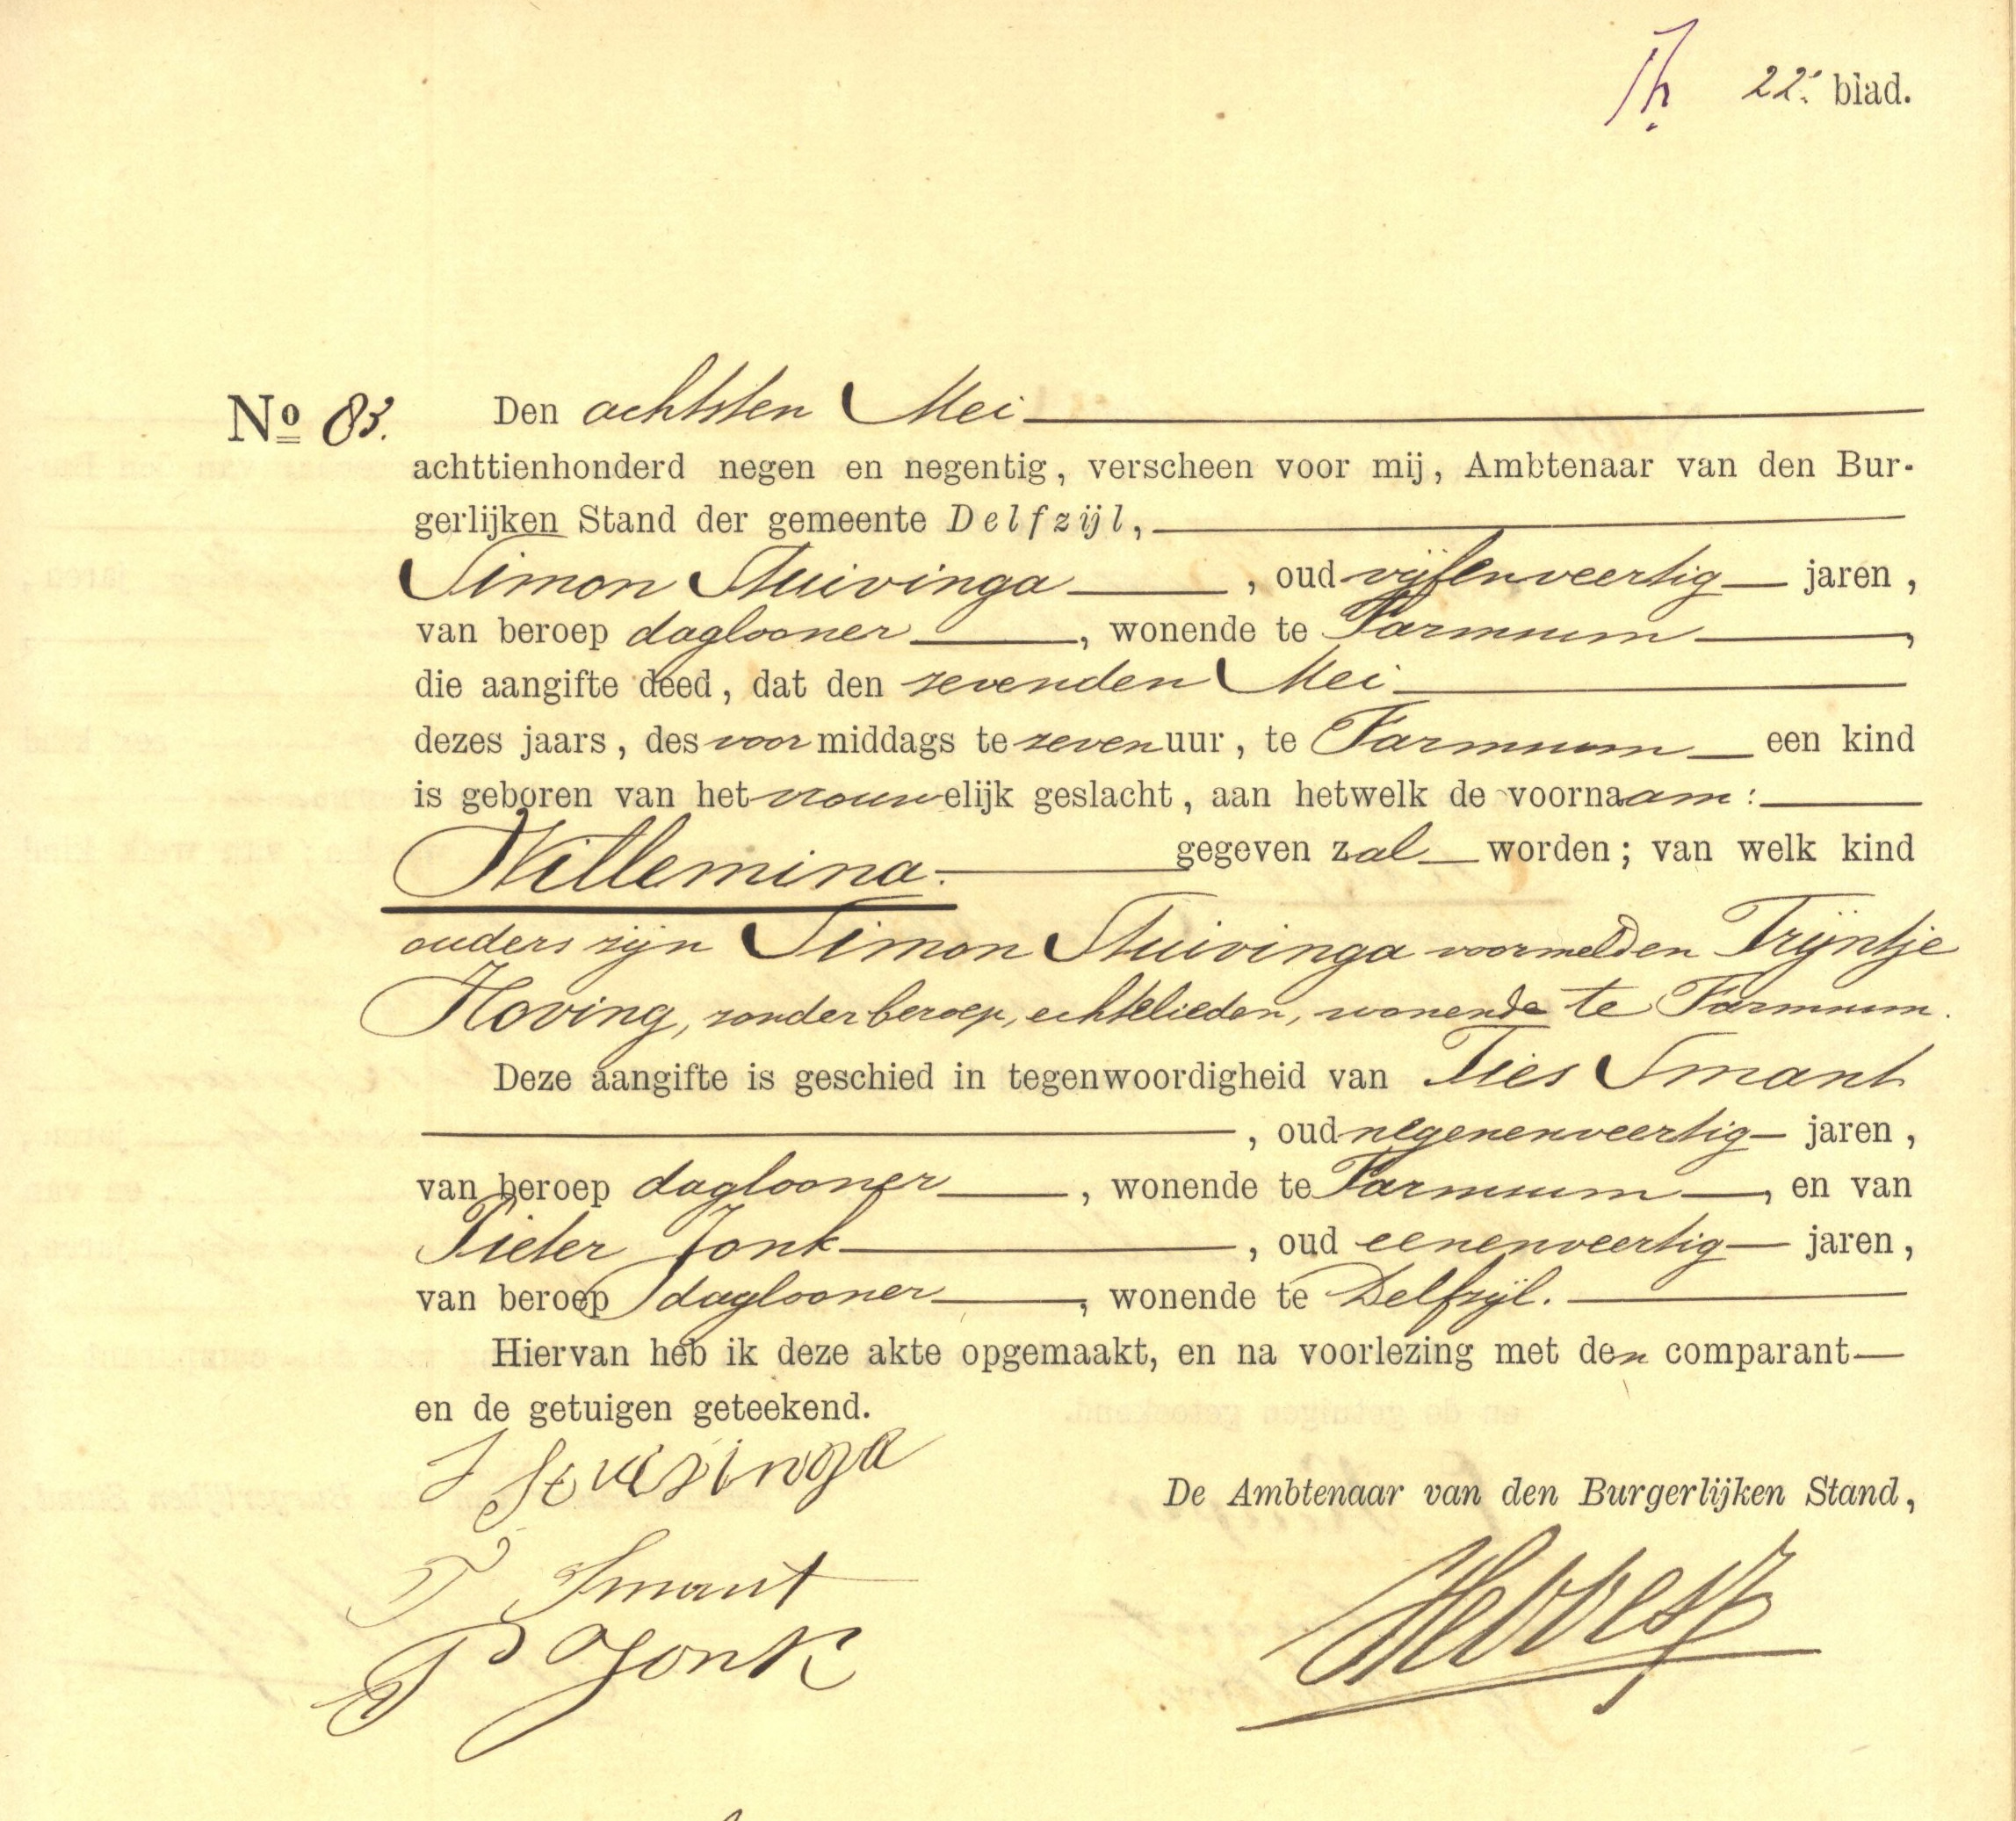 22e blad.
No 83. Den achtsten Mei
achttienhonderd negen en negentig, verscheen voor mij, Ambtenaar van den Bur-
gerlijken Stand der gemeente Delfzijl,
Simon Stuivinga, oud vijfenveertig jaren,
van beroep daglooner, wonende te Farmsum,
die aangifte deed, dat den zevenden Mei
dezes jaars, des voormiddags te zeven uur, te Farmsum een kind
is geboren van het vrouwelijk geslacht, aan hetwelk de voornaam:
Willemina. gegeven zal worden; van welk kind
ouders zijn Simon Stuivinga voormeld en Trijntje
Hoving, zonder beroep, echtelieden, wonende te Farmsum.
Deze aangifte is geschied in tegenwoordigheid van Ties Smant
, oud negenenveertig jaren,
van beroep daglooner, wonende te Farmsum, en van
Pieter Jonk, oud eenenveertig jaren,
van beroep daglooner, wonende te Delfzijl.
Hiervan heb ik deze akte opgemaakt, en na voorlezing met den comparant
en de getuigen geteekend.
S Stuivinga
De Ambtenaar van den Burgerlijken Stand,
T Smant
P Jonk